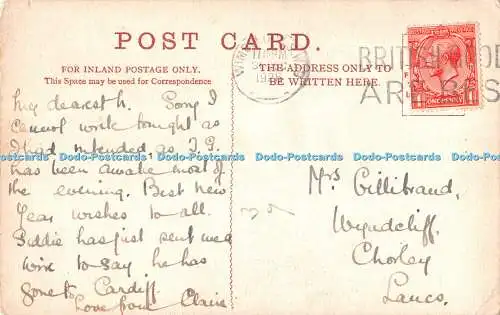 POST CARD.
FOR INLAND POSTAGE ONLY.
This Space may be used for Correspondence
THE ADDRESS ONLY TO
BE WRITTEN HERE.
BRITISH
ARE BEST
POSTAGE
ONE PENNY
My dearest h. Sorry I
cannot write tonight as
I had intended, as J.G.
has been awake most of
the evening. Best New
Year wishes to all.
has just sent me a
wire to say he has
gone to Cardiff.
Love from Claire
Mrs Gillibrand,
Wyndcliff,
Chorley
Lancs.
Dodo-Postcards Dodo-Postcards Dodo-Postcards Dodo-Postcards